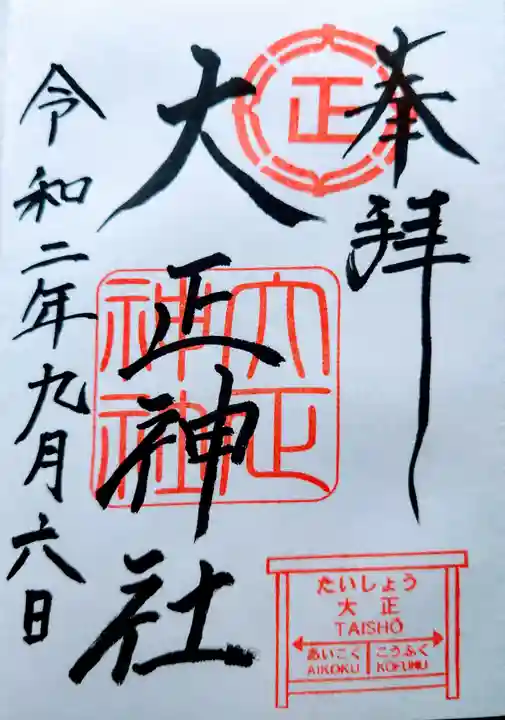 奉拝
正
大正神社
大正
神社
令和二年九月六日
たいしょう
大正
TAISHŌ
あいこく こうふく
AIKOKU KOFUKU